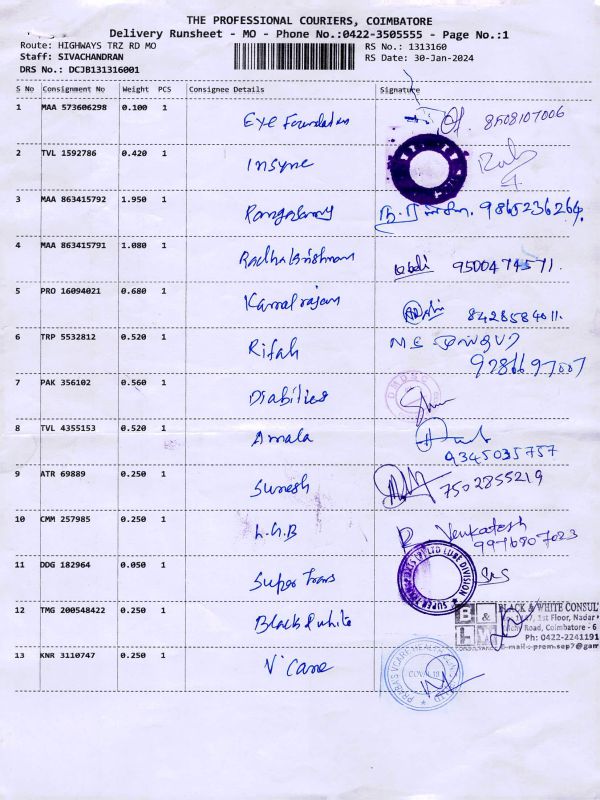 THE PROFESSIONAL COURIERS, COIMBATORE
Delivery Runsheet - MO - Phone No.:0422-3505555 - Page No.:1
Route: HIGHWAYS TRZ RD MO
RS No.: 1313160
Staff: SIVACHANDRAN
RS Date: 30-Jan-2024
DRS No.: DCJB131316001
S No Consignment No Weight PCS Consignee Details Signature
1 MAA 573606298 0.100 1 Eye Foundation 8508107006
2 TVL 1592786 0.420 1 Insyne
3 MAA 863415792 1.950 1 9865236264.
4 MAA 863415791 1.080 1 Radhakrishnan 9500474571.
5 PRO 16094021 0.680 1 Kamalrajan 8428584011.
6 TRP 5532812 0.520 1 Rifah
7 PAK 356102 0.560 1 Diabilies
8 TVL 4355153 0.520 1 Amala
9345035757
9 ATR 69889 0.250 1 Suresh 7502855219
10 CMM 257985 0.250 1 L.G.B Venkatesh
9976807023
11 DDG 182964 0.050 1 Super Trans
SUPER TRANSPORTS (P) LTD LUBE DIVISION
12 TMG 200548422 0.250 1 Black & white
B & W
BLACK & WHITE CONSUL
1st Floor, Nadar
Road, Coimbatore - 6
Ph: 0422-2241191
E-mail: prem.sep7@gam
CONSULTANC
13 KNR 3110747 0.250 1 V'Care